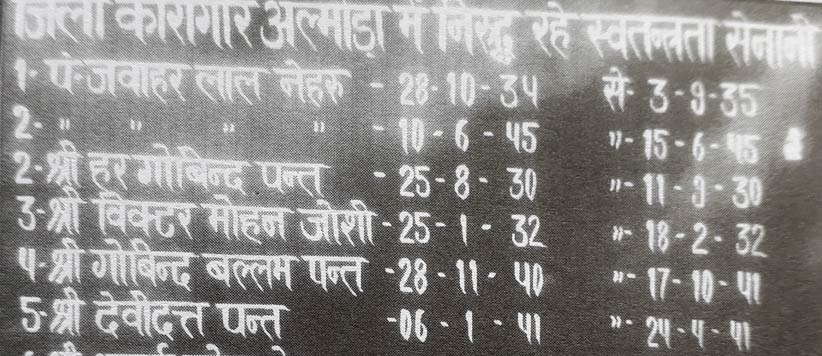 जिला कारागार अल्मोड़ा में निरुद्ध रहे स्वतन्त्रता सेनानी
1- पं॰ जवाहर लाल नेहरू - 28-10-34 से- 3-9-35
2- " " " " - 10-6-45 "- 15-6-45
2- श्री हर गोबिन्द पन्त - 25-8-30 "- 11-9-30
3- श्री विक्टर मोहन जोशी - 25-1-32 "- 18-2-32
4- श्री गोबिन्द बल्लभ पन्त - 28-11-40 "- 17-10-41
5- श्री देवीदत्त पन्त - 06-1-41 "- 24-4-41